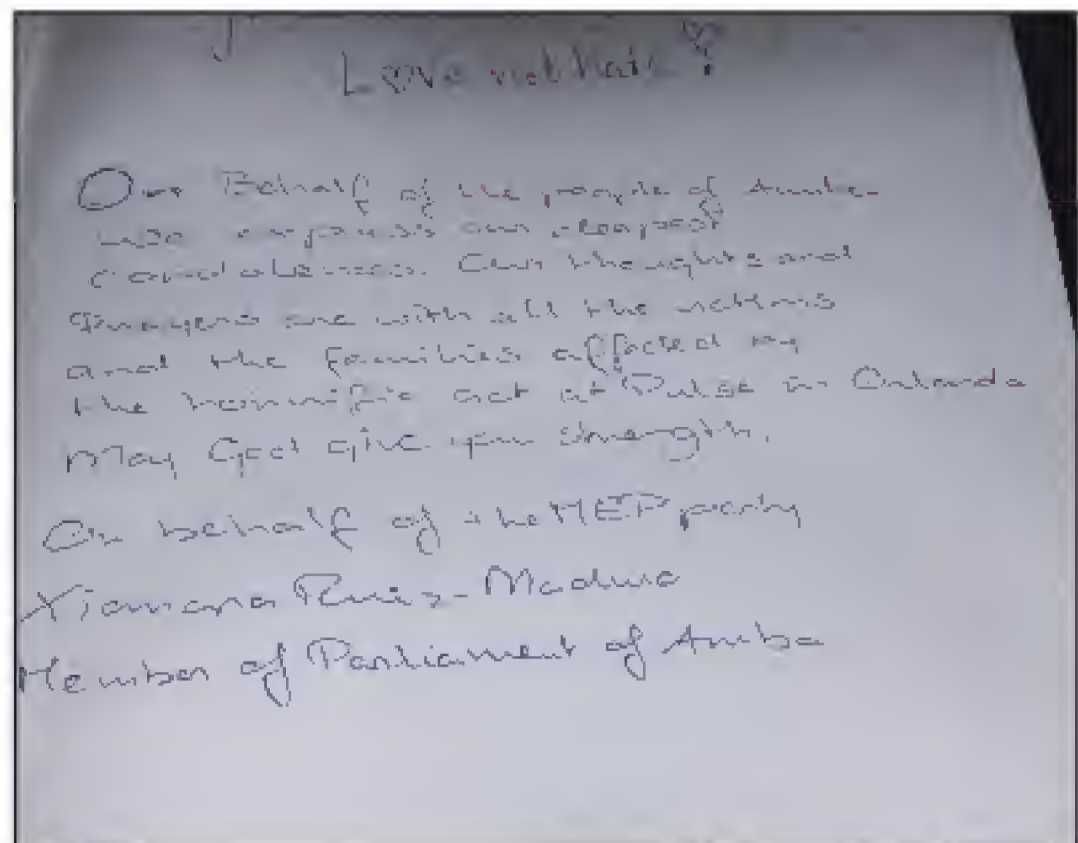 Love not hate
On Behalf of the people of Aruba
we express our deepest
condolences. Our thoughts and
prayers are with all the victims
and the families affected by
the horrific act at Pulse in Orlando
May God give you strength.
On behalf of the MEP party
Xiomara Ruiz-Maduro
Member of Parliament of Aruba